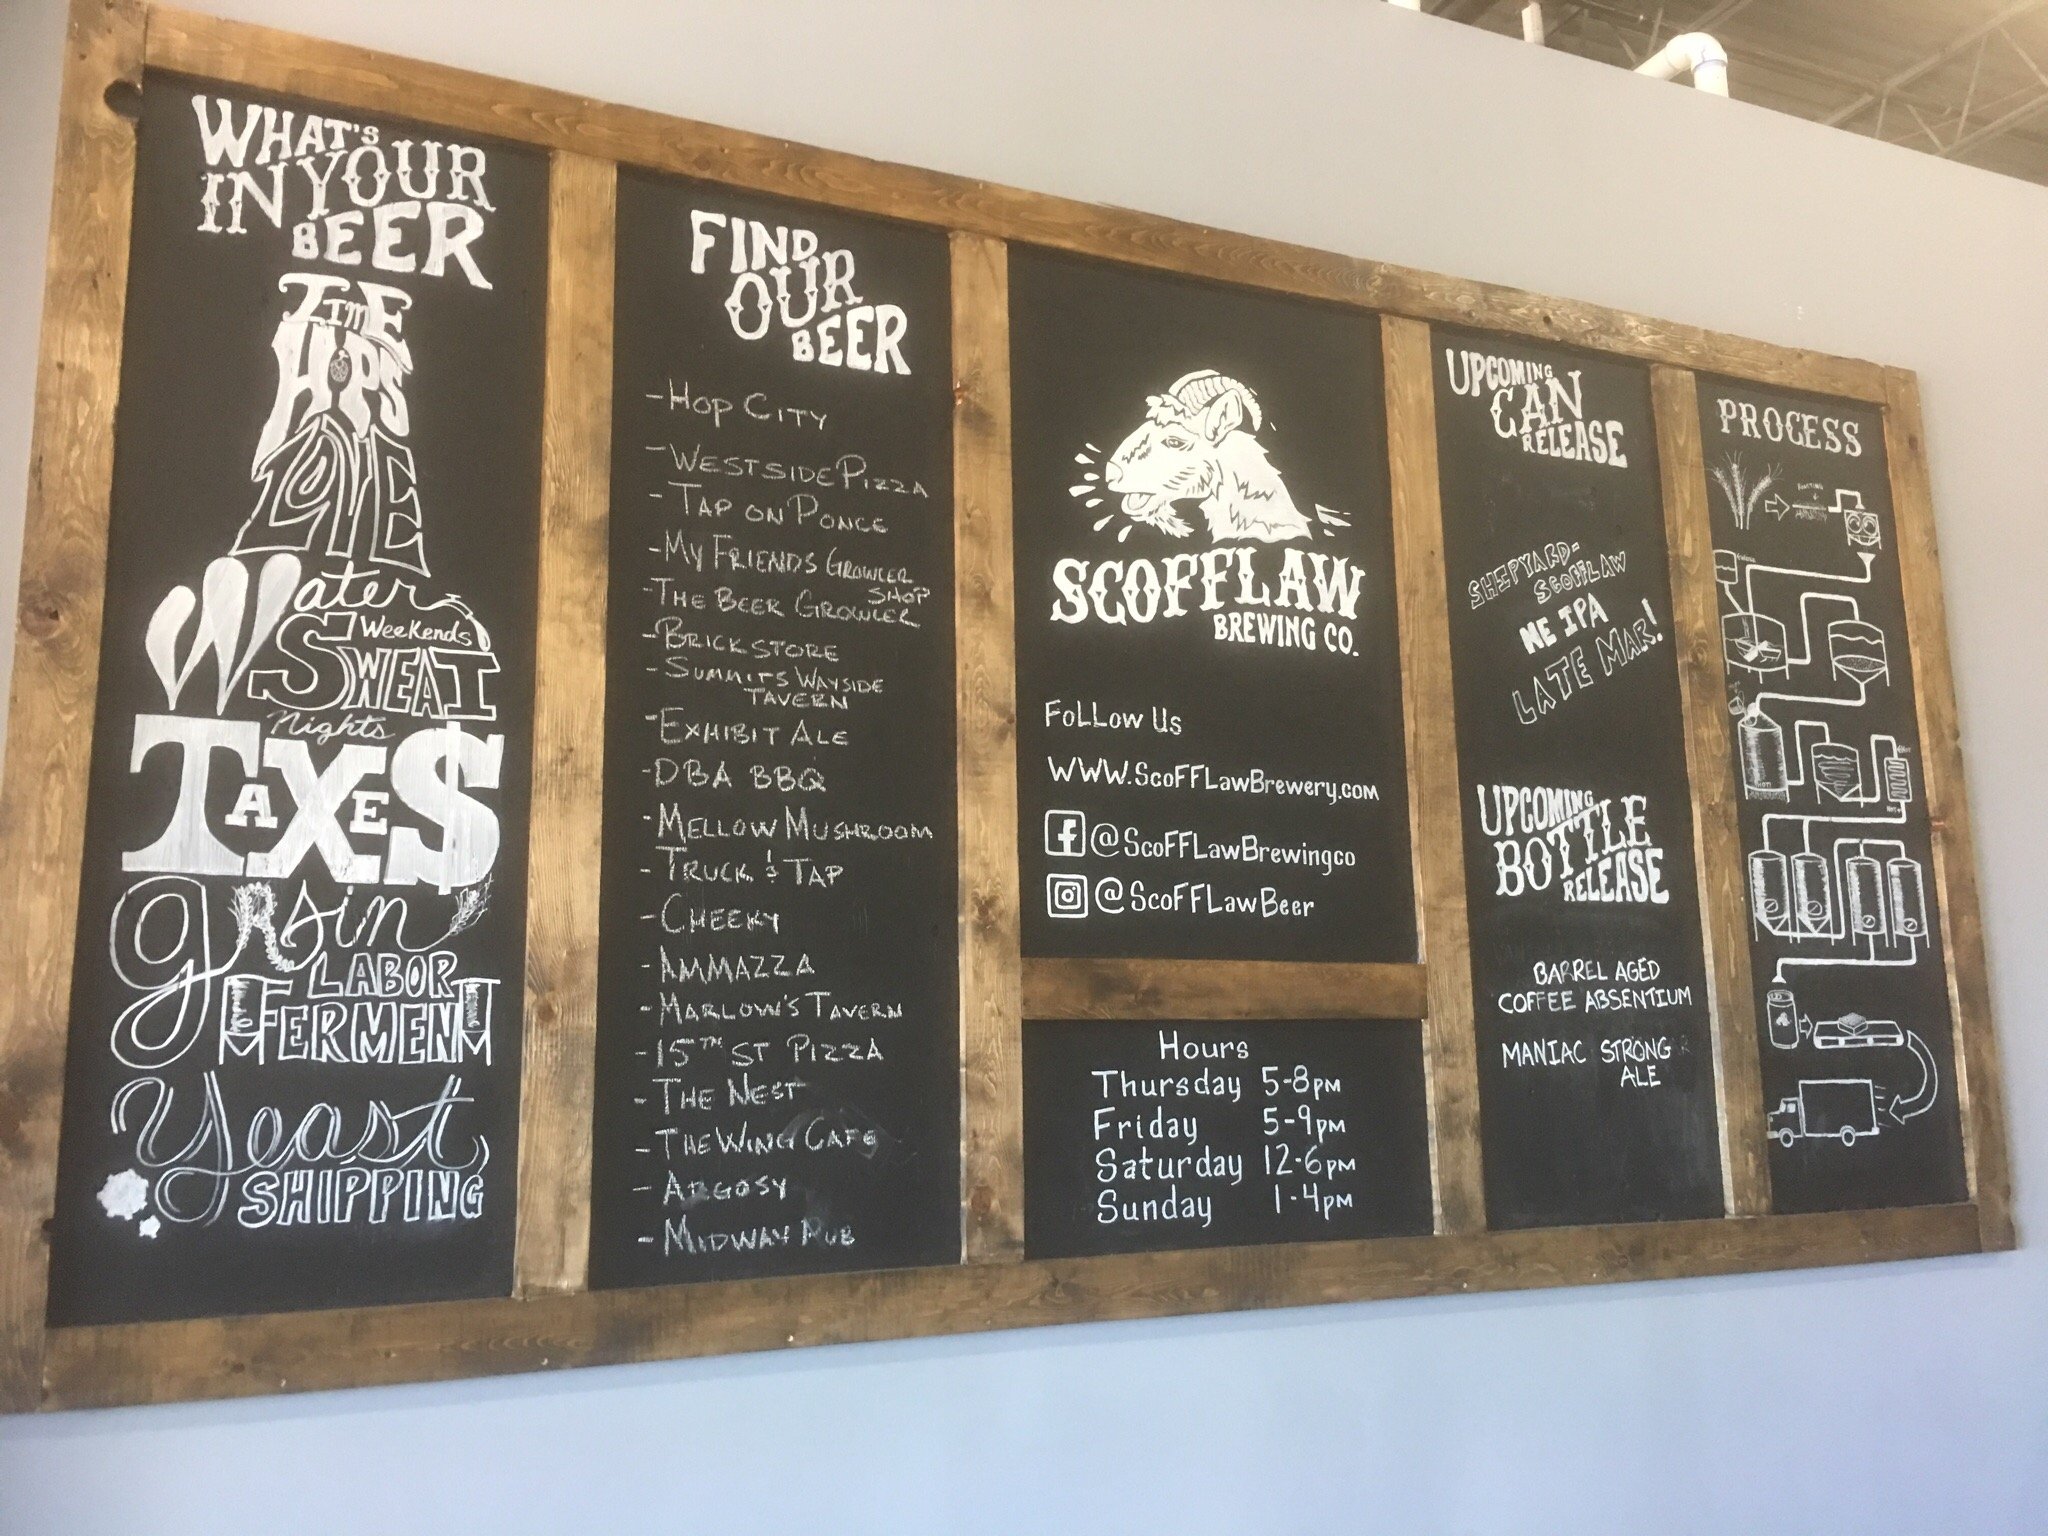 WHAT'S
IN YOUR
BEER
TIME
HOPS
LOVE
Water
Weekends
SWEAT
Nights
TAXE$
grain
LABOR
FERMENT
Yeast
SHIPPING
FIND
OUR
BEER
- HOP CITY
- WESTSIDE PIZZA
- TAP ON PONCE
- MY FRIENDS GROWLER
SHOP
- THE BEER GROWLER
- BRICKSTORE
- SUMMITS WAYSIDE
TAVERN
- EXHIBIT ALE
- DBA BBQ
- MELLOW MUSHROOM
- TRUCK & TAP
- CHEEKY
- AMMAZZA
- MARLOW'S TAVERN
- 15TH ST PIZZA
- THE NEST
- THE WING CAFE
- ARGOSY
- MIDWAY PUB
SCOFFLAW
BREWING CO.
FOLLOW US
WWW.SCOFFLAWBREWERY.COM
f @SCOFFLAWBREWINGCO
@SCOFFLAWBEER
Hours
Thursday 5-8PM
Friday 5-9PM
Saturday 12-6PM
Sunday 1-4PM
UPCOMING
CAN
RELEASE
SHIPYARD-
SCOFFLAW
NE IPA
LATE MAR!
UPCOMING
BOTTLE
RELEASE
BARREL AGED
COFFEE ABSENTIUM
MANIAC STRONG
ALE
PROCESS